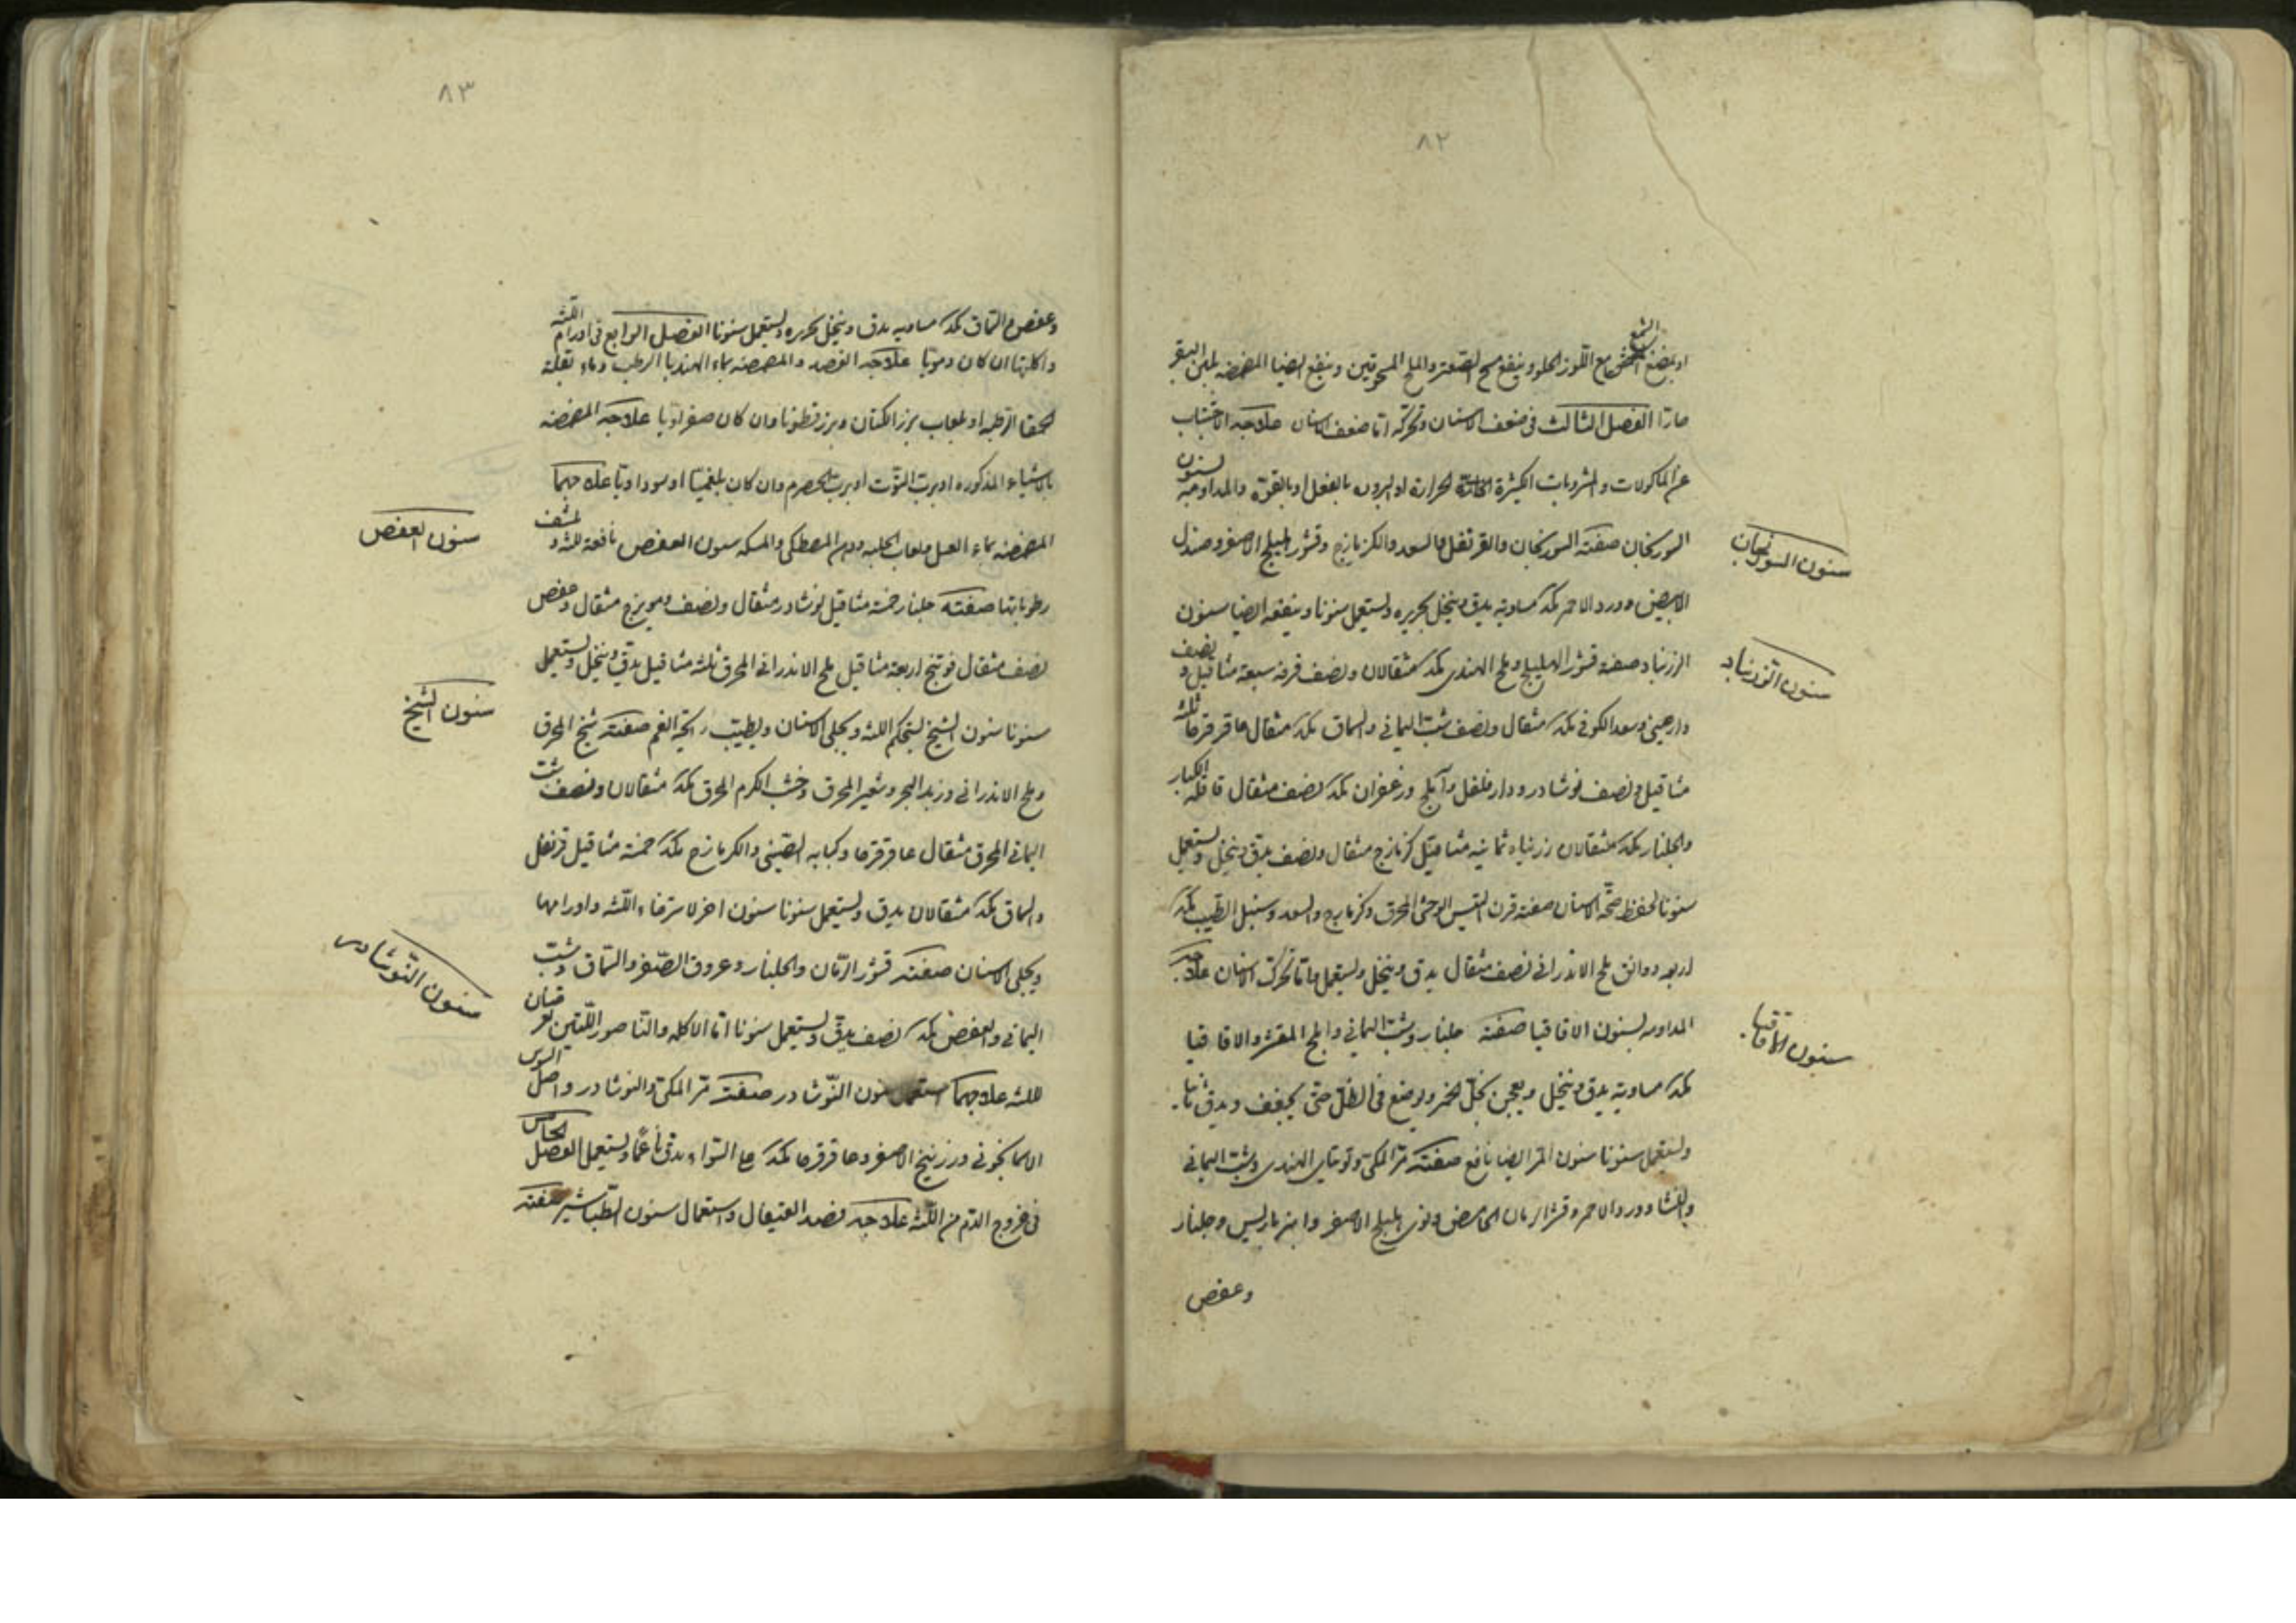 ٨٢
الشمع
او بمضغ مع اللوز الحلو وينفع مسح الصعتر والملح المسحوقين وينفع ايضا المضمضه بلبن البقر
حارا الفصل الثالث فى ضعف الاسنان وتحركه اما ضعف الاسنان علاجه الاجتناب
عن الماكولات والمشروبات الكثيرة الحرارة او البروده بالفعل او بالقوة والمداومه لسنون
السورنجان صفته السورنجان والقرنفل والسعد والكزمازج وقشور الهليلج الاصفر وصندل
سنون السورنجان
الابيض وورد الاحمر مكد مساوية يدق وينخل بحريره ويستعمل سنونا وينفعه ايضا سنون
الزرنباد صفته قشور الهليلج وملح الهندى مكد مثقالان ونصف قرفه سبعة مثاقيل ونصف
سنون الزرنباد
دارصينى وسعد الكوفى مكد مثقال ونصف شب اليمانى والسماق مكد مثقال عاقرقرحا ثلثة
مثاقيل ونصف نوشادر ودارفلفل وآملج وزعفران مكد نصف مثقال قاقله الكبار
والجلنار مكد مثقالان زرنباد ثمانيه مثاقيل كزمازج مثقال ونصف يدق وينخل ويستعمل
سنونا لحفظ صحة الاسنان صفته قرن التيس الوحشى المحرق وكزمازج والسعد وسنبل الطيب مكد
اربعه دوانق ملح الاندرانى نصف مثقال يدق وينخل ويستعمل واما تحرك الاسنان علاجه
المداومه لسنون الاقاقيا صفته جلنار وشب اليمانى واملج المقشر والاقاقيا
سنون الاقاقيا
مكد مساوية يدق وينخل ويعجن بخل الخمر ويوضع فى الظل حتى يجفف ويدق ثانيا
ويستعمل سنونا سنون المر ايضا نافع صفته مر المكى وتوتياى الهندى وشب اليمانى
وورد الاحمر وقشر الرمان الحامض ونوى هليلج الاصفر وانبرباريس وجلنار
وعفص
٨٣
وعفص والسماق مكد مساويه يدق وينخل بحريره ويستعمل سنونا الفصل الرابع فى اورام اللثه
واكلتها ان كان دمويا علاجه الفصد والمضمضه بماء الهندبا الرطب وماء بقلة
الحمقا الرطبه او لعاب بزر الكتان وبزرقطونا وان كان صفراويا علاجه المضمضه
بالاشياء المذكوره او برب التوت او برب الحصرم وان كان بلغميا او سوداويا علاجهما
المضمضه بماء العسل ولعاب الحلبه ودهن المصطكى والمسكه سنون العفص نافعة للثه و لنشف
سنون العفص
رطوباتها صفته جلنار خمسة مثاقيل نوشادر مثقال ونصف ومويزج مثقال وعفص
نصف مثقال فوتنج اربعة مثاقيل ملح الاندرانى المحرق ثلثة مثاقيل يدق وينخل ويستعمل
سنونا سنون الشيخ ليتحكم اللثه ويجلى الاسنان ويطيب رايحة الفم صفته شيخ المحرق
سنون الشيخ
وملح الاندرانى وزبد البحر وشعير المحرق وخشب الكرم المحرق مكد مثقالان ونصف شب
اليمانى المحرق مثقال عاقرقرحا وكبابه الصينى والكزمازج مكد خمسة مثاقيل قرنفل
والسماق مكد مثقالان يدق ويستعمل سنونا سنون اخر لاسترخاء اللثه واورامها
ويجلى الاسنان صفته قشور الرمان والجلنار وعروق الصفر والسماق وشب
اليمانى والعفص مكد نصف يدق ويستعمل سنونا اما الاكله والناصور اللتين تعرضان
للثه علاجهما استعمال سنون النوشادر صفته مر المكى والنوشادر واصل السوس
سنون النوشادر
الاسمانجونى وزرنيخ الاصفر وعاقرقرحا مكد على السواء يدق ناعما ويستعمل الفصل الخامس
فى خروج الدم من اللثه علاجه فصد القيفال واستعمال سنون الطباشير صفته